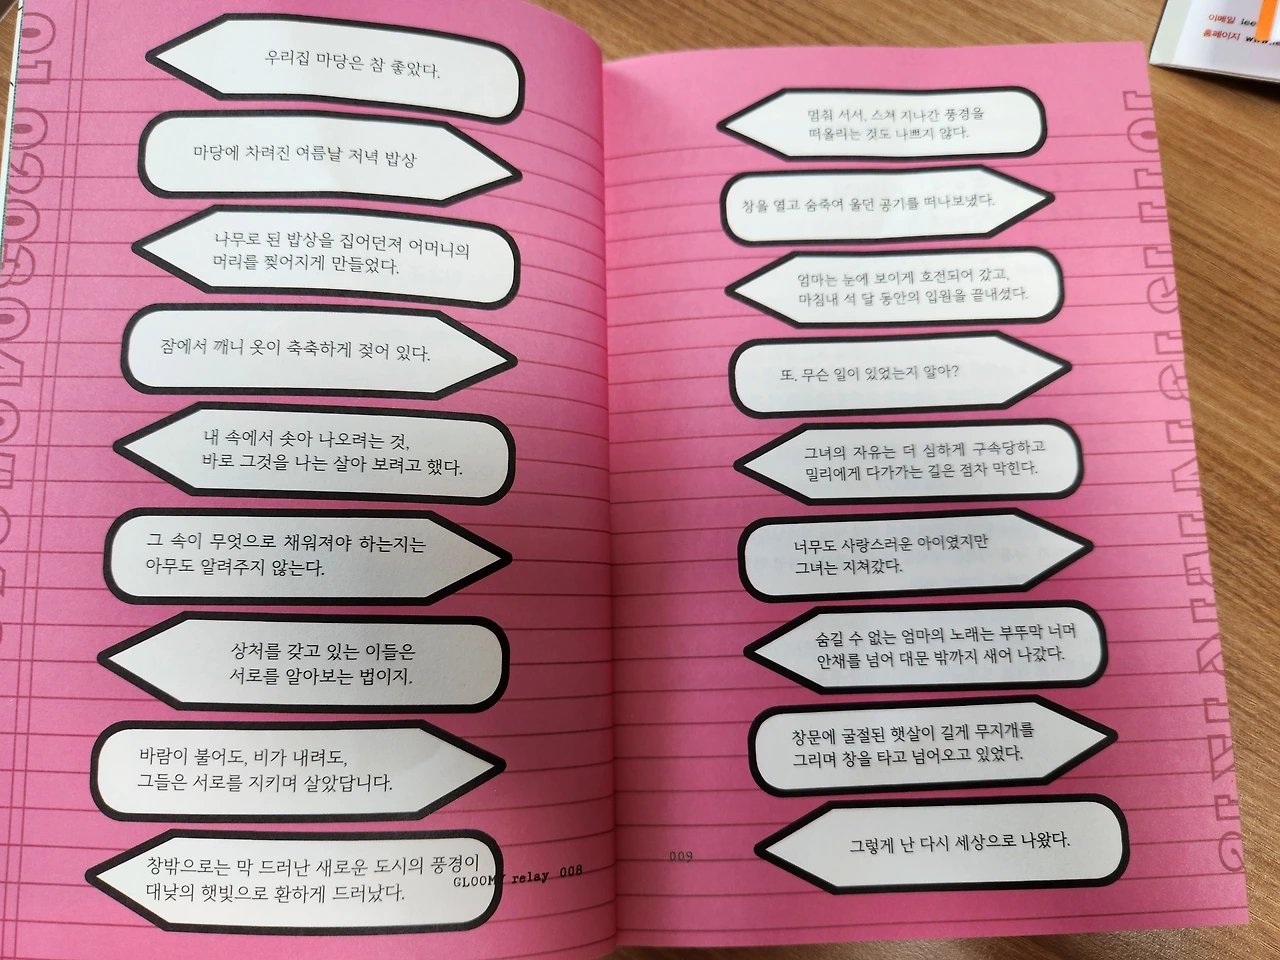 우리집 마당은 참 좋았다.
마당에 차려진 여름날 저녁 밥상
나무로 된 밥상을 집어던져 어머니의
머리를 찢어지게 만들었다.
잠에서 깨니 옷이 축축하게 젖어 있다.
내 속에서 솟아 나오려는 것,
바로 그것을 나는 살아 보려고 했다.
그 속이 무엇으로 채워져야 하는지는
아무도 알려주지 않는다.
상처를 갖고 있는 이들은
서로를 알아보는 법이지.
바람이 불어도, 비가 내려도,
그들은 서로를 지키며 살았답니다.
창밖으로는 막 드러난 새로운 도시의 풍경이
대낮의 햇빛으로 환하게 드러났다.
GLOOMY relay 008
멈춰 서서, 스쳐 지나간 풍경을
떠올리는 것도 나쁘지 않다.
창을 열고 숨죽여 울던 공기를 떠나보냈다.
엄마는 눈에 보이게 호전되어 갔고,
마침내 석 달 동안의 입원을 끝내셨다.
또, 무슨 일이 있었는지 알아?
그녀의 자유는 더 심하게 구속당하고
밀리에게 다가가는 길은 점차 막힌다.
너무도 사랑스러운 아이였지만
그녀는 지쳐갔다.
숨길 수 없는 엄마의 노래는 부뚜막 너머
안채를 넘어 대문 밖까지 새어 나갔다.
창문에 굴절된 햇살이 길게 무지개를
그리며 창을 타고 넘어오고 있었다.
그렇게 난 다시 세상으로 나왔다.
009
이메일
홈페이지